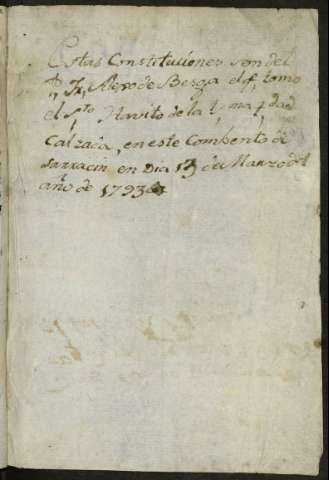 Estas Constituciones son del
P. Fr. Alexo de Berga el q. tomo
el Sto. Havito de la
Calzada, en este Combento de
Sarracin en Dia 19 de Marzo del
año de 1793